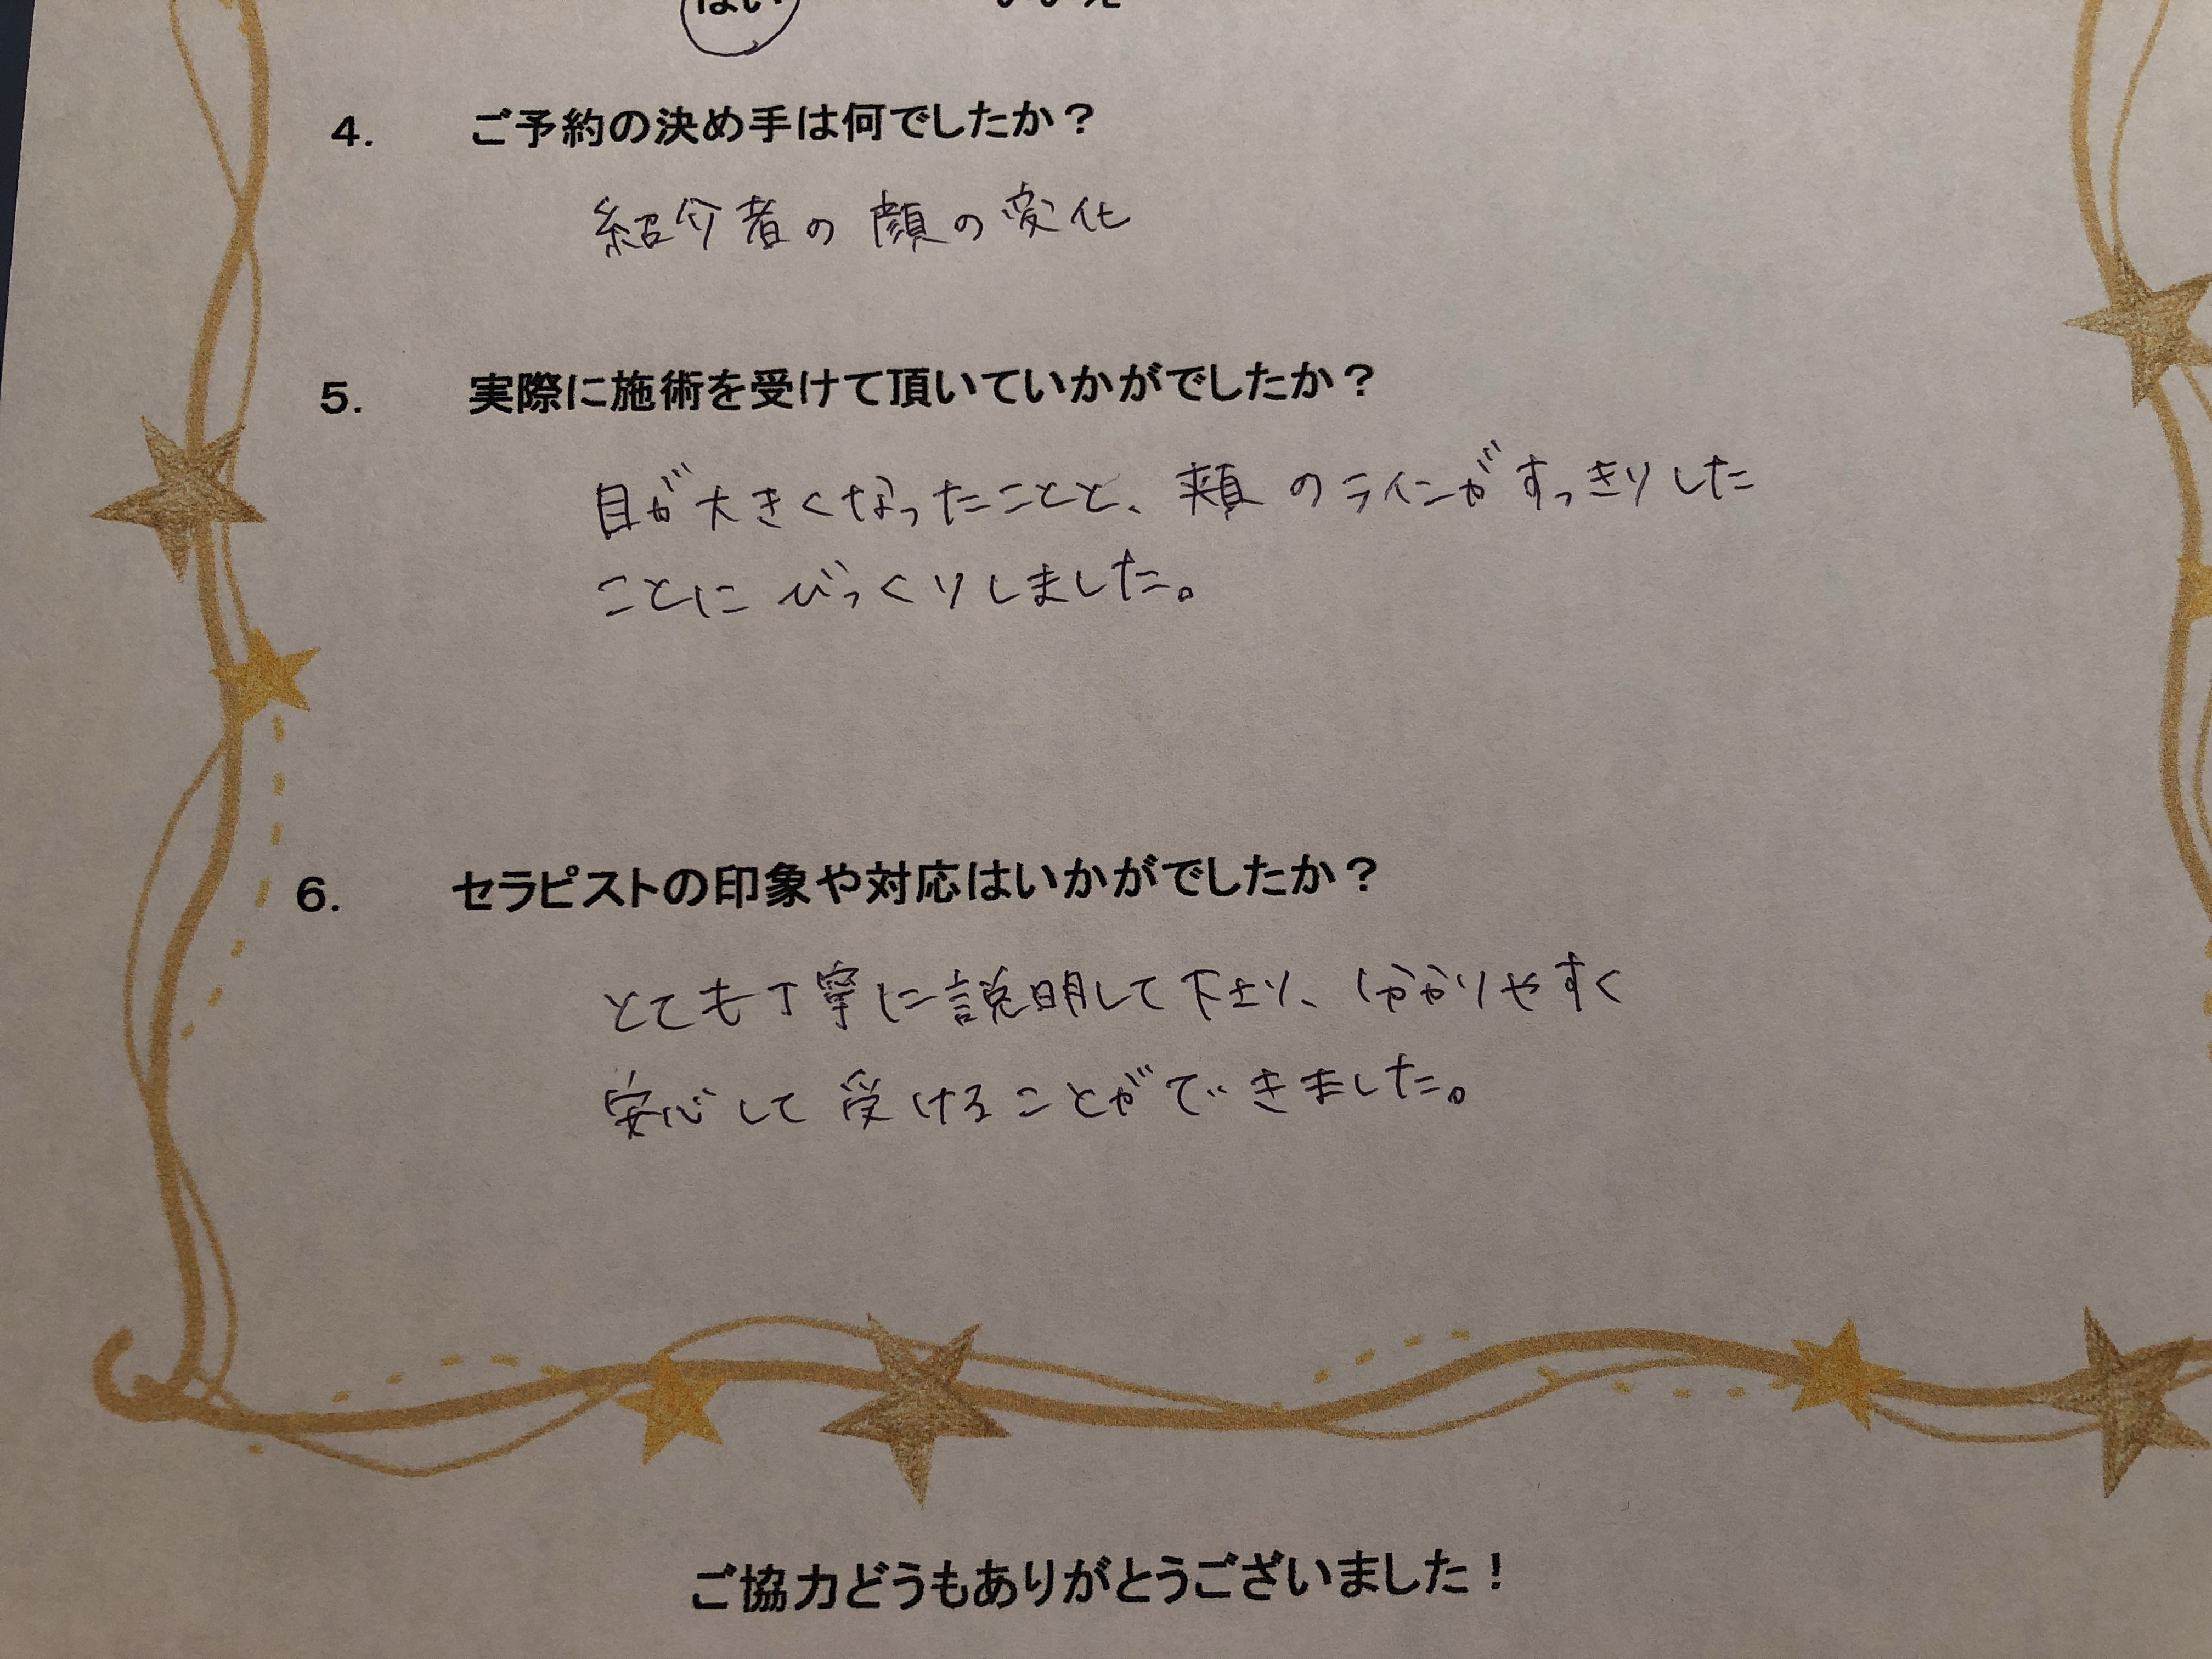 はい いいえ
4. ご予約の決め手は何でしたか？
紹介者の顔の変化
5. 実際に施術を受けて頂いていかがでしたか？
目が大きくなったことと、頬のラインがすっきりした
ことにびっくりしました。
6. セラピストの印象や対応はいかがでしたか？
とても丁寧に説明して下さり、分かりやすく
安心して受けることができました。
ご協力どうもありがとうございました！